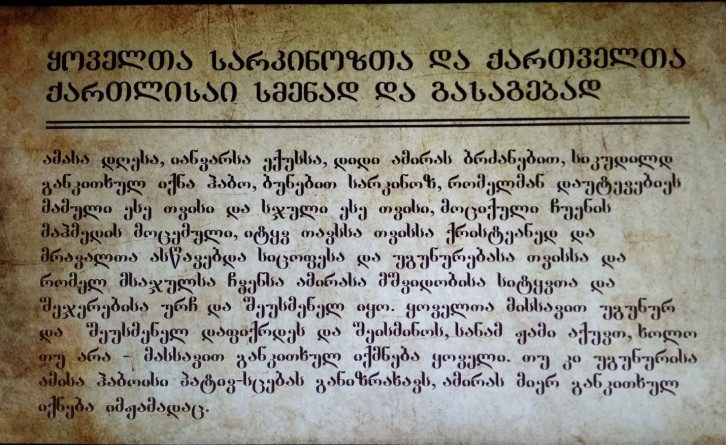 ყოველთა სარკინოზთა და ქართველთა
ქართლისაი სმენად და გასაგებად
ამასა დღესა, იანვარსა ექუსსა, დიდი ამირას ბრძანებით, სიკუდილდ
განკითხულ იქნა ჰაბო, ბუნებით სარკინოზ, რომელმან დაუტევებიეს
მამული ესე თვისი და სჯული ესე თვისი, მოციქული ჩუენის
მაჰმედის მოცემული, იტყვ თავსსა თვისსა ქრისტეანედ და
მრავალთა ასწავებდა სიცოფესა და უგუნურებასა თვისსა და
რომელ მსაჯულსა ჩვენსა ამირასა მშვიდობისა სიტყვთა და
შეჯერებისა ურჩ და შეუსმენელ იყო. ყოველთა მისსავით უგუნურ
და შეუსმენელ დაფიქრდეს და შეისმინოს, სანამ ჟამი აქუვთ, ხოლო
თუ არა - მასსავით განკითხულ იქმნება ყოველი. თუ კი უგუნურისა
ამისა ჰაბოისი პატივ-სცებას განიზრახავს, ამირას მიერ განკითხულ
იქნება იმჟამადაც.